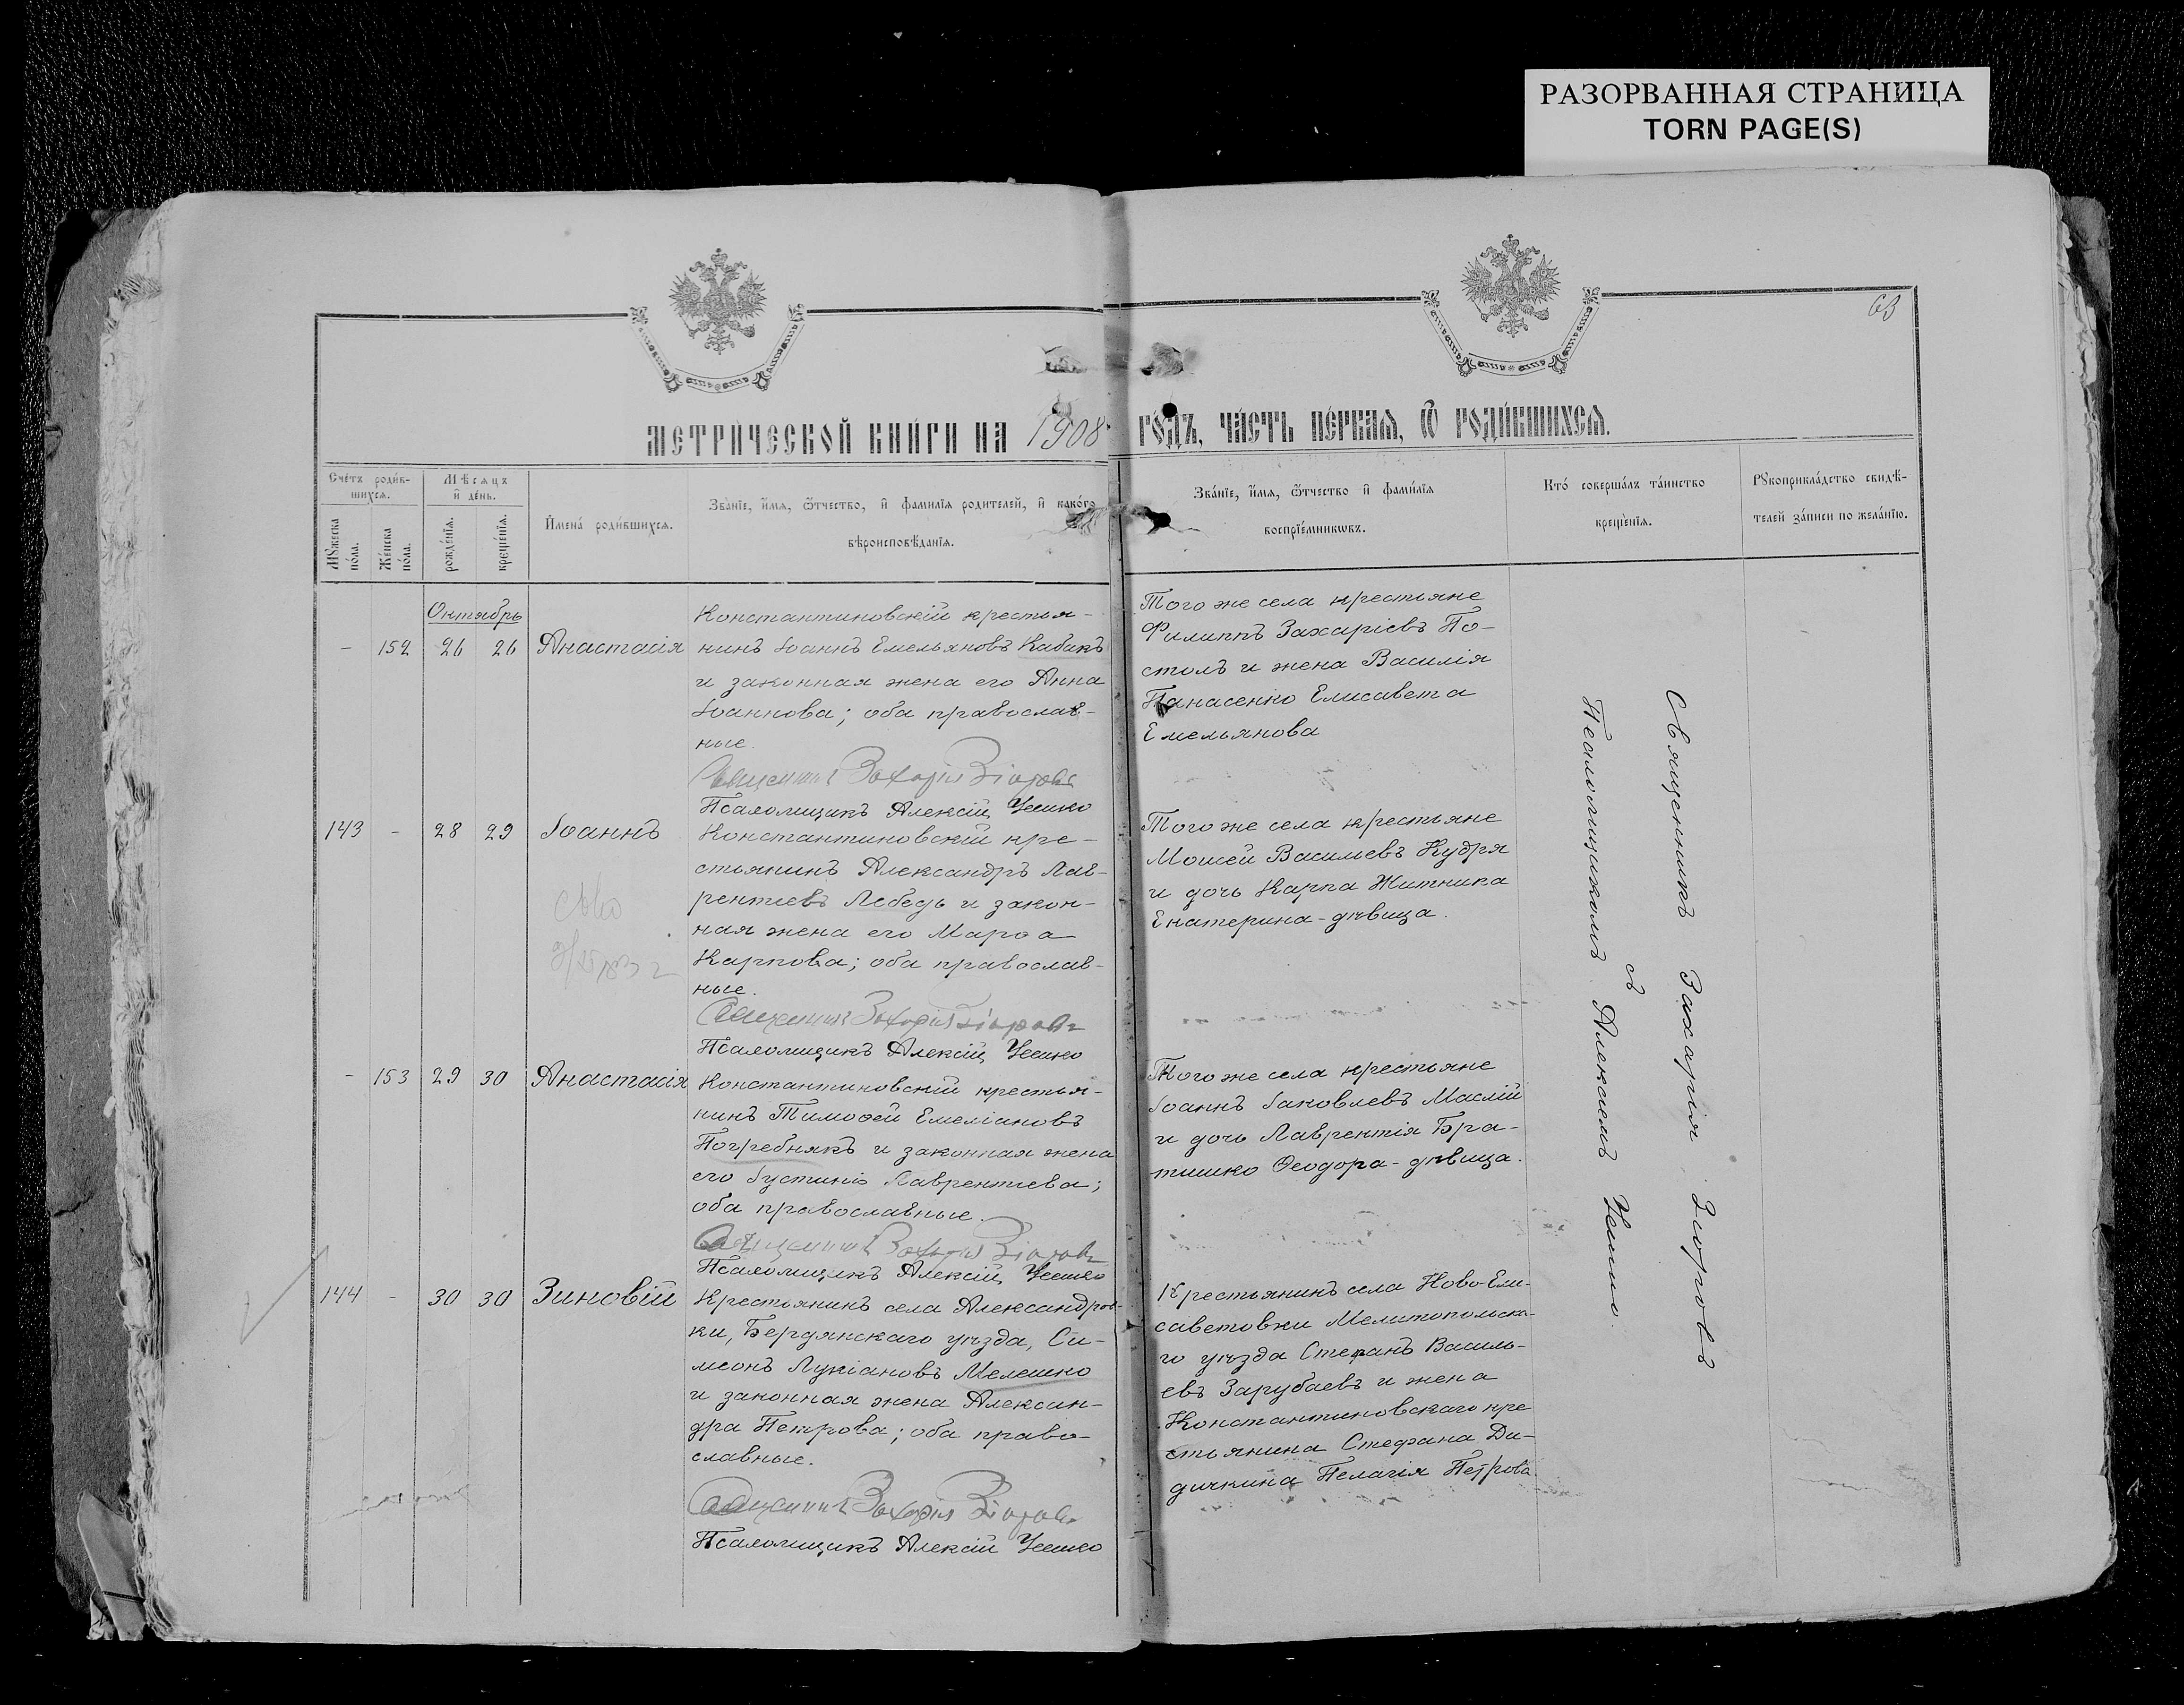 РАЗОРВАННАЯ СТРАНИЦА
TORN PAGE(S)
63
МЕТРИ́ЧЕСКОЙ КНИ́ГИ НА 1908 ГО́ДЪ, ЧА́СТЬ ПЕ́РВАЯ, Ѿ РОДИ́ВШИХСЯ.
Сче́тъ роди́в-
шихся.
Мѣсяцъ
и де́нь.
Мꙋ́жеска
по́ла.
Же́нска
по́ла.
рожде́нїѧ.
креще́нїѧ.
Имена́ роди́вшихся.
Зва́нїе, и́мѧ, ѻ́тчество, и фами́лїѧ роди́телей, и како́го
вѣроисповѣ́данїѧ.
Зва́нїе, и́мѧ, ѻ́тчество и фами́лїѧ
воспрїе́мниковъ.
Кто́ соверша́лъ та́инство
креще́нїѧ.
Рꙋкоприкла́дство свидѣ́-
телей за́писи по жела́нїю.
Октябрь
- 152 26 26 Анастасія
Константиновскій крестья-
нинъ Іоаннъ Емельяновъ Кабакъ
и законная жена его Анна
Іоаннова; оба православ-
ные.
Священникъ Захарія
Псаломщикъ Алексій Уемко
Того же села крестьяне
Филиппъ Захаріевъ По-
столъ и жена Василія
Панасенко Елисавета
Емельянова
143 - 28 29 Іоаннъ
Константиновскій кре-
стьянинъ Александръ Лав-
рентіевъ Лебедь и закон-
ная жена его Марѳа
Карпова; оба православ-
ные.
Священникъ Захарія
Псаломщикъ Алексій Уемко
Того же села крестьяне
Моисей Васильевъ Кудря
и дочь Карпа Житника
Екатерина - дѣвица.
- 153 29 30 Анастасія
Константиновскій крестья-
нинъ Тимоѳей Емеліановъ
Погребнякъ и законная жена
его Іустинія Лаврентіева;
оба православные.
Священникъ Захарія
Псаломщикъ Алексій Уемко
Того же села крестьяне
Іоаннъ Іаковлевъ Маслій
и дочь Лаврентія Бра-
тишко Ѳеодора - дѣвица.
144 - 30 30 Зиновій
Крестьянинъ села Александров-
ки, Бердянскаго уѣзда, Си-
меонъ Лукіановъ Мелешко
и законная жена Алексан-
дра Петрова; оба право-
славные.
Священникъ Захарія
Псаломщикъ Алексій Уемко
Крестьянинъ села Ново-Ели-
саветовки Мелитопольска-
го уѣзда Стефанъ Василь-
евъ Зарубаевъ и жена
Константиновскаго кре
стьянина Стефана Ди-
дичкина Пелагія Петрова
Священникъ Захарія
съ
Псаломщикомъ Алексіемъ